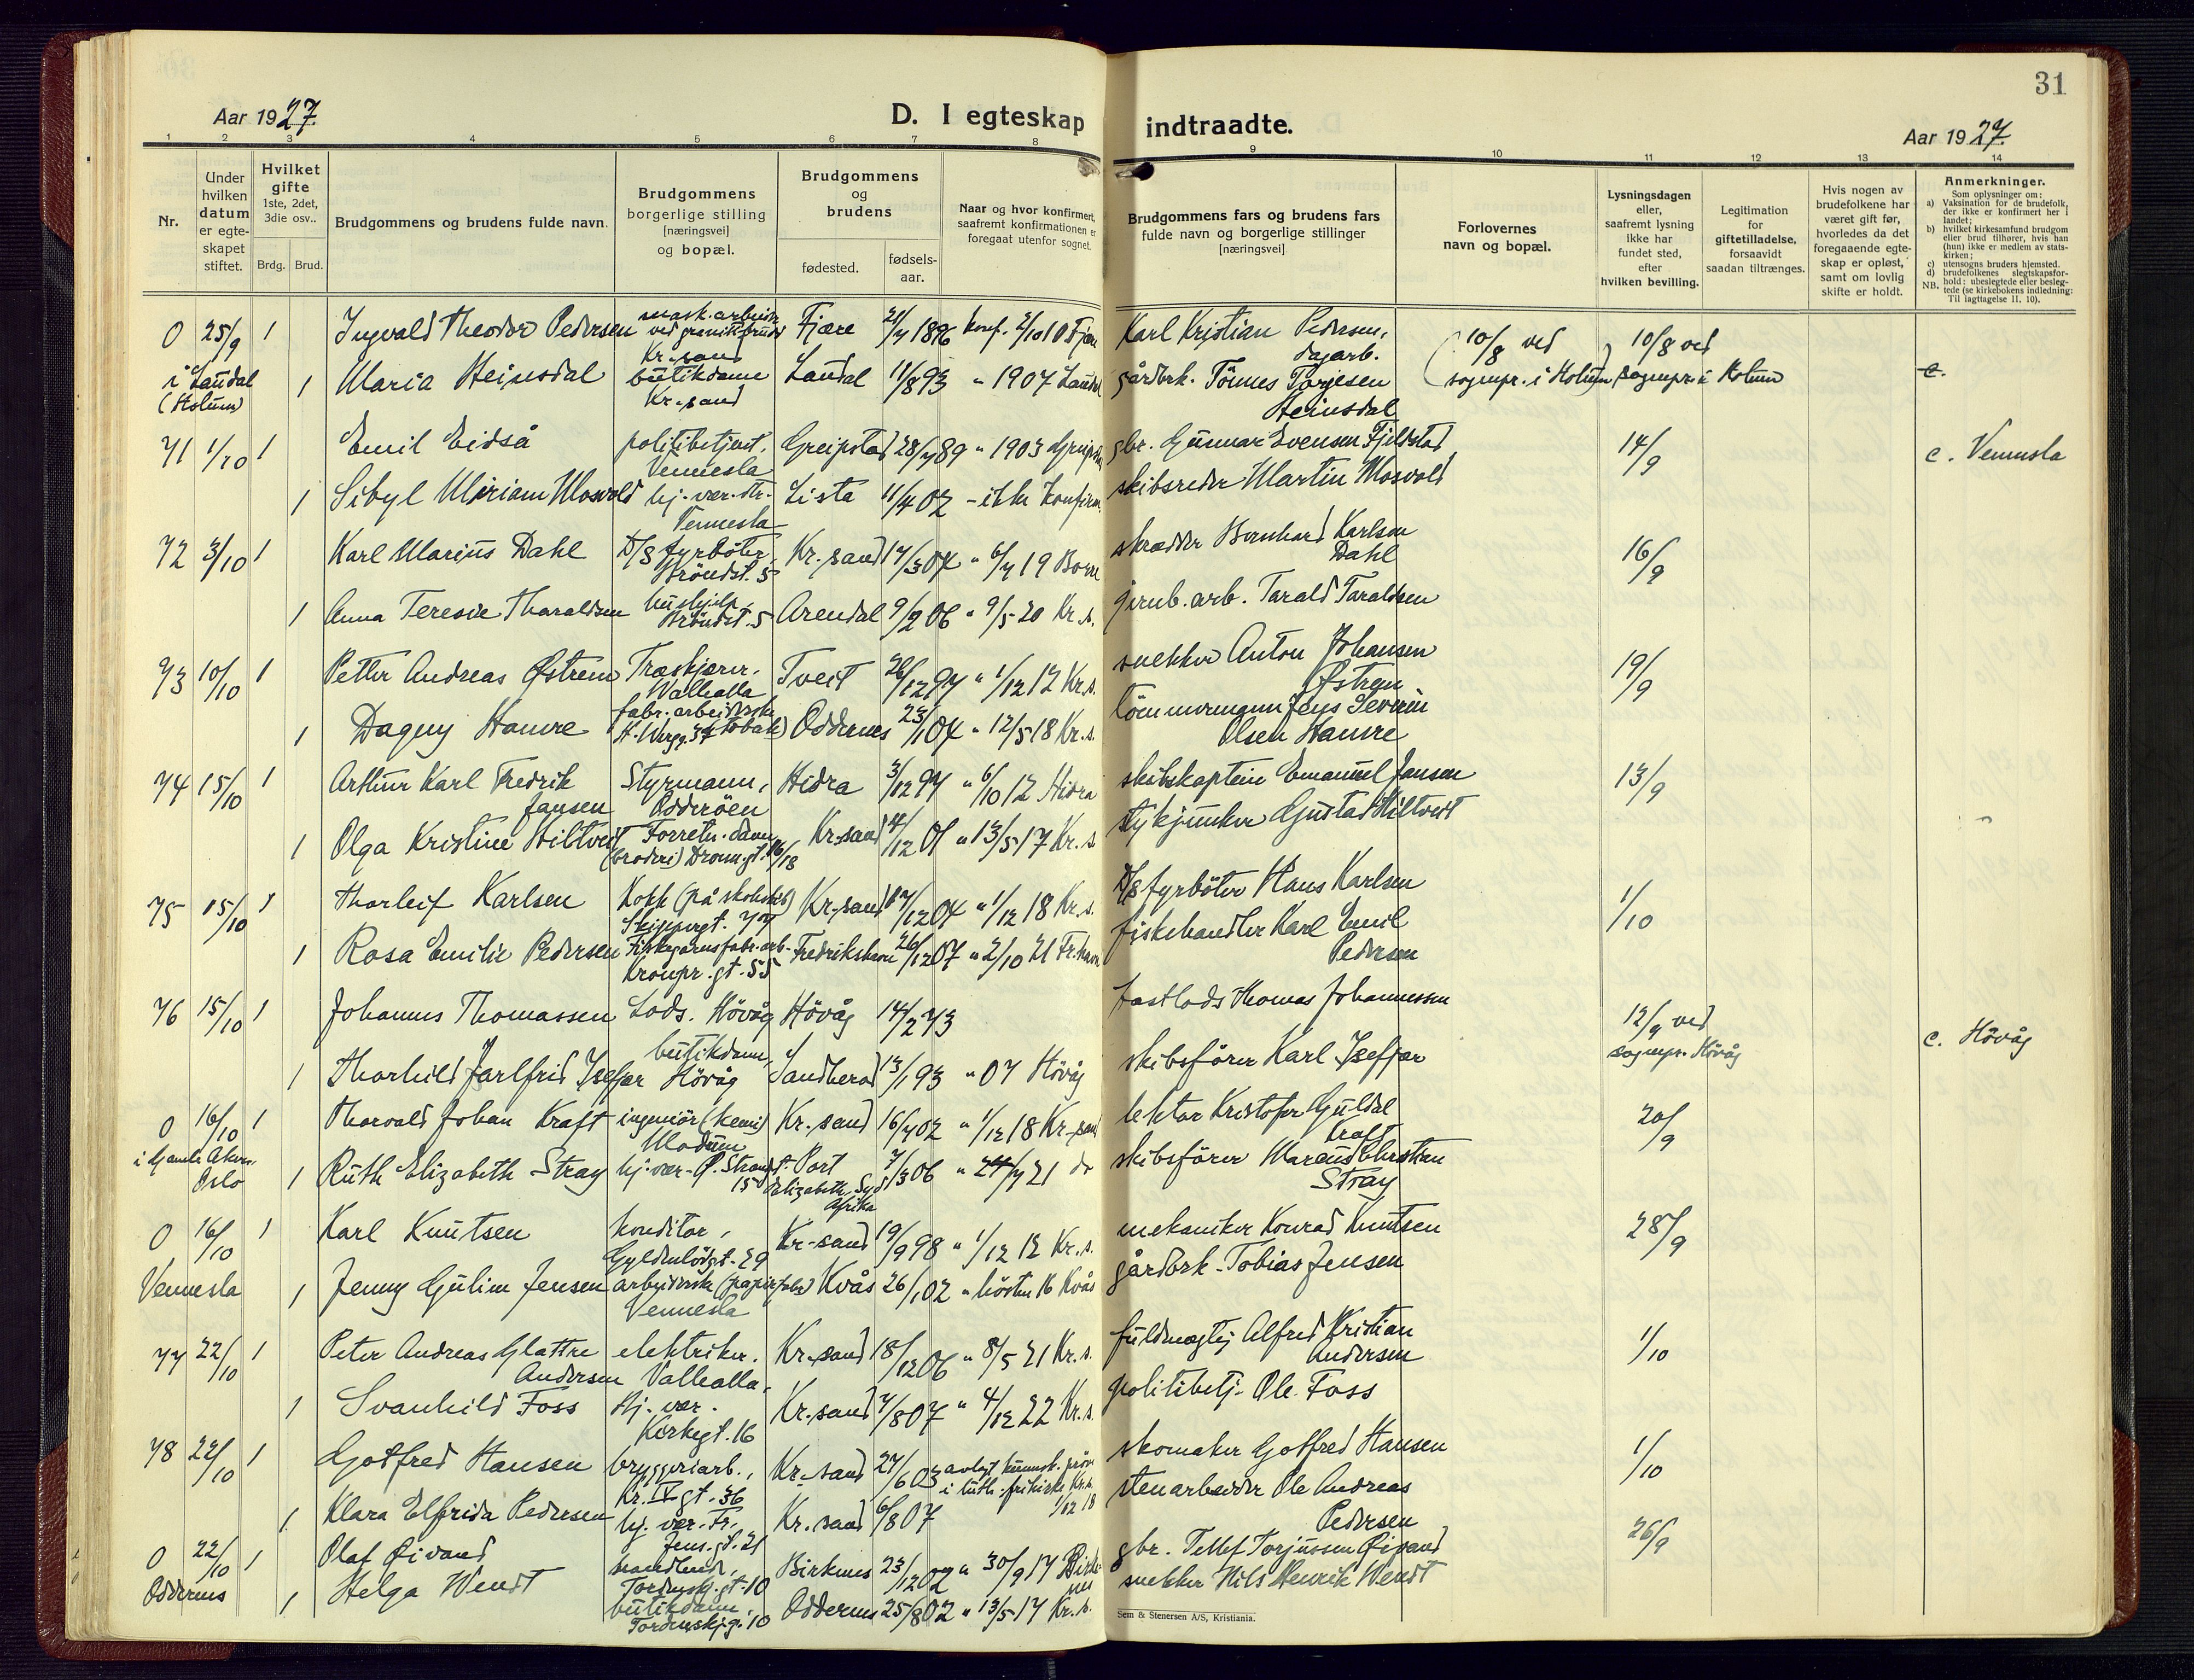 31
Aar 1927.
D. I egteskap indtraadte.
Aar 1927.
1 2 3 4 5 6 7 8 9 10 11 12 13 14
Nr.
Under hvilken datum er egteskapet stiftet.
Hvilket gifte 1ste, 2det, 3die osv..
Brdg. Brud.
Brudgommens og brudens fulde navn.
Brudgommens borgerlige stilling [næringsvei] og bopæl.
Brudgommens og brudens
fødested. fødselsaar.
Naar og hvor konfirmert, saafremt konfirmationen er foregaat utenfor sognet.
Brudgommens fars og brudens fars fulde navn og borgerlige stillinger [næringsvei]
Forlovernes navn og bopæl.
Lysningsdagen eller, saafremt lysning ikke har fundet sted, efter hvilken bevilling.
Legitimation for giftetilladelse, forsaavidt saadan tiltrænges.
Hvis nogen av brudefolkene har været gift før, hvorledes da det foregaaende egteskap er opløst, samt om lovlig skifte er holdt.
Anmerkninger.
Som oplysninger om:
a) Vaksination for de brudefolk, der ikke er konfirmert her i landet;
b) hvilket kirkesamfund brudgom eller brud tilhører, hvis han (hun) ikke er medlem av statskirken;
c) utensogns bruders hjemsted.
d) brudefolkenes slegtskapsforhold: ubeslegtede eller beslegtede (se kirkebokens indledning:
NB. Til iagttagelse II, 10).
0 25/9 1 Ingvald Theodor Pedersen mask.arbeider ved granitbrudd Kr.sand Fjære 21/7 1896 konf. 2/10 10 Fjære Karl Kristian Pedersen, dagarb. (10/8 ved sognepr. i Holum) 10/8 ved sognepr. i Holum
i Laudal (Holum) 1 Maria Heinsdal butikdame Kr.sand Laudal 11/8 93 " 1907 Laudal gårdbrk. Tönnes Torjesen Heinsdal c.
71 1/10 1 Emil Eidså politibetjent, Vennesla Greipstad 28/7 89 " 1903 Greipstad gbr. Gunnar Evensen Fjeldstad 14/9 c. Vennsla
1 Sibyl Miriam Mosvold hj.vær. Vennesla Lista 11/4 02 - ikke konfirm. skibsreder Martin Mosvold
72 3/10 1 Karl Marius Dahl D/S fyrböter, Bröndst. 5 Kr.sand 17/3 04 " 6/7 19 Borre skrædder Bernhard Karlsen Dahl 16/9
1 Anna Teresie Tharaldsen hushjelp, Bröndst. 5 Arendal 9/2 06 " 9/5 20 Kr.s. jernb.arb. Tarald Taraldsen
73 10/10 1 Petter Andreas Østrem Træskjærer. Valhalla Tveit 26/12 97 " 1/12 12 Kr.s. snekker Anton Johansen Østrem 19/9
1 Dagny Hamre fabr.arbeiderske (tobak) Oddernes 23/1 04 " 12/5 18 Kr.s. tömmermann Jens Severin Olsen Hamre
74 15/10 1 Arthur Karl Fredrik Jansen Styrmann, Odderöen Hidra 3/12 97 " 6/10 12 Hidra skibskaptein Emanuel Jansen 13/9
1 Olga Kristine Hiltveit Forretn.dame (broderi) Dronn.gt. 16/18 Kr.sand 4/12 01 " 13/5 17 Kr.s. stykjunker Gustav Hiltveit
75 15/10 1 Thorleif Karlsen Kokk (på skoleskib) Skippergt. 77 Kr.sand 17/12 04 " 1/12 18 Kr.s. D/S fyrböter Hans Karlsen 1/10
1 Rosa Emilie Pedersen Fiskegarnsfabr.arb. Kronpr.gt. 55 Fredrikshavn 26/12 07 " 2/10 21 Fr.havn fiskehandler Karl Emil Pedersen
76 15/10 1 Johannes Thomassen Lods. Hövåg Hövåg 14/2 73 fastlods Thomas Johannessen 12/9 ved sognepr. Hövåg c. Hövåg
1 Thorhild Jarlfrid Isefjær butikdame, Hövåg Sandherad 13/1 93 " 07 Hövåg skibsförer Karl Isefjær
0 16/10 1 Thorvald Johan Kraft ingeniör (kemi) Modum Kr.sand 16/7 02 " 1/12 18 Kr.sand lektor Kristofer Guldal Kraft 20/9
i Gamle Aker, Oslo 1 Ruth Elizabeth Stray hj.vær. Ø. Strandgt. 15 Port Elizabeth, Syd Afrika 7/3 06 " 24/7 21 do skibsförer Marcus Christian Stray
0 16/10 1 Karl Knutsen konditor, Gyldenlövsgt. 29 Kr.sand 19/9 98 " 1/12 12 Kr.s. mekaniker Konrad Knutsen 28/9
Vennesla 1 Jenny Gulime Jensen arbeiderske (papirfabr) Vennesla Kvås 26/1 02 " hösten 16 Kvås gårdbrk. Tobias Jensen
77 22/10 1 Peter Andreas Glattre Andersen elektriker. Valhalla. Kr.sand 18/12 06 " 8/5 21 Kr.s. fuldmægtig Alfred Kristian Andersen 1/10
1 Svanhild Foss Hj.vær. Kirkegt. 16 Kr.sand 7/8 07 " 4/12 22 Kr.s. politibetj. Ole Foss
78 22/10 1 Gotfred Hansen bryggeriarb., Kr. IV gt. 36 Kr.sand 27/6 03 avlagt kunnsk.pröve i luth. frikirke Kr.s. 1/12 18 skomaker Gotfred Hansen 1/10
1 Klara Elfrida Pedersen hj. vær. Fr. Jens.gt. 21 Kr.sand 6/8 07 stenarbeider Ole Andreas Pedersen
0 22/10 1 Olaf Øivand handlende, Tordenskj.gt. 10 Birkenes 23/12 02 " 30/9 17 Birkenes gbr. Tellef Torjussen Øivand 26/9
Oddernes 1 Helga Wendt butikdame, Tordenskj.g. 10 Oddernes 25/8 02 " 13/5 17 Kr.s. snekker Nils Henrik Wendt
Sem & Stenersen A/S, Kristiania.